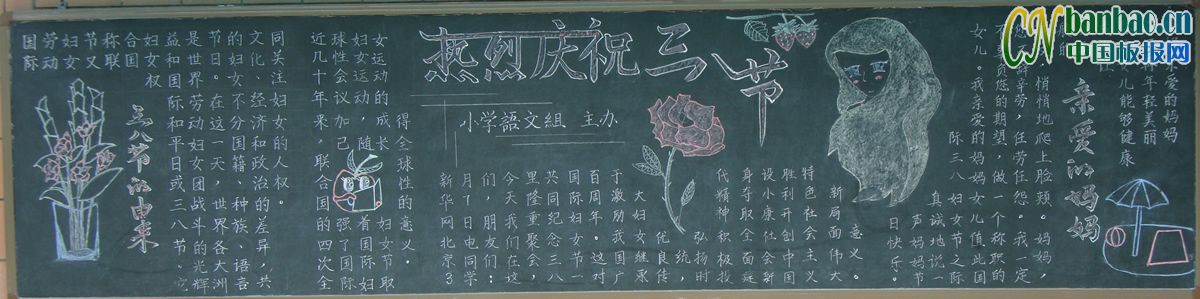 热烈庆祝三八节
小学語文組 主办
三八节的由来
国际
劳动
妇女
节又
称联
合国
妇女权
益和国际和平日或三八节。
是世界劳动妇女团战斗的光辉
节日。在这一天,世界各大洲
的妇女不分国籍、种族、語吾
文化、经济和政治的差异,共
同关注妇女的人权。
近几十年来,联合国的四次全
球性会议加强了国际
妇女运动,随着国际妇
女运动的成长 妇女节取
得全球性的意义。
新华网北京3
月7日电同学
们,朋友们:
今天我们在这
里隆重聚会,
共同纪念三八
国际妇女节一
百周年。这对
于激励我国广
大妇女继承
优良传
统,
弘扬时
代精神积极投
身夺取全面
设小康社会新
胜利开创中国
特色社会主义
新局面伟大
意义。
亲爱的妈妈
亲爱的妈妈
年轻美丽
女儿能够健康
悄悄地爬上脸颊。妈妈,
辛劳,任劳任怨。我一定
负您的期望,做一个称职的
女儿。我亲爱的妈妈 女儿值此国
际三八 妇女节之际
真诚地说一
声妈妈节
日快乐。
CN banbao.cn
中国板报网